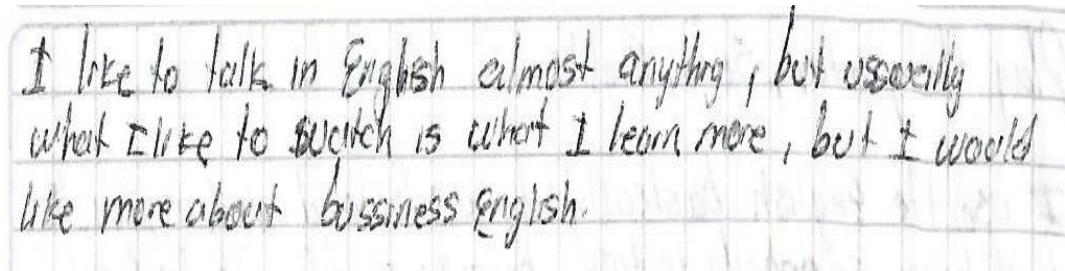 I like to talk in English almost anything, but usually
what I like to swatch is what I learn more, but I would
like more about bussiness English.